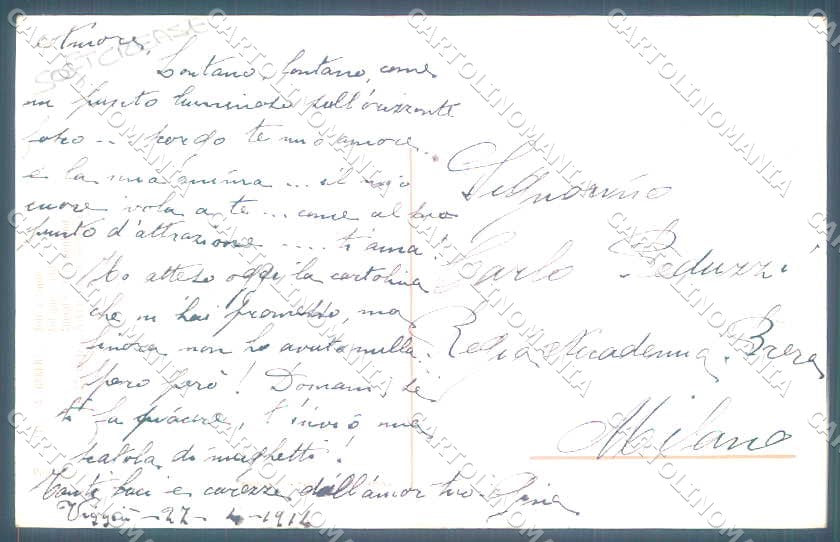 Amore,
Lontano, lontano, come
un punto luminoso sull'orizzonte
.. scorgo te mio amore..
e la mia anima... il mio
cuore vola a te... come al suo
punto d'attrazione.... ti ama!
Ho atteso oggi la cartolina
che m'hai promesso, ma
finora non ho avuto nulla.
però! Domani, se
ti fa piacere, t'invio una
scatola di mughetti!
Tanti baci e carezze dall'amor tuo
Viggiù - 27 - 4 - 1914
Signorino
Carlo Peduzzi
Regia Accademia Brera
Milano
SOFT CREASE
CARTOLINOMANIA